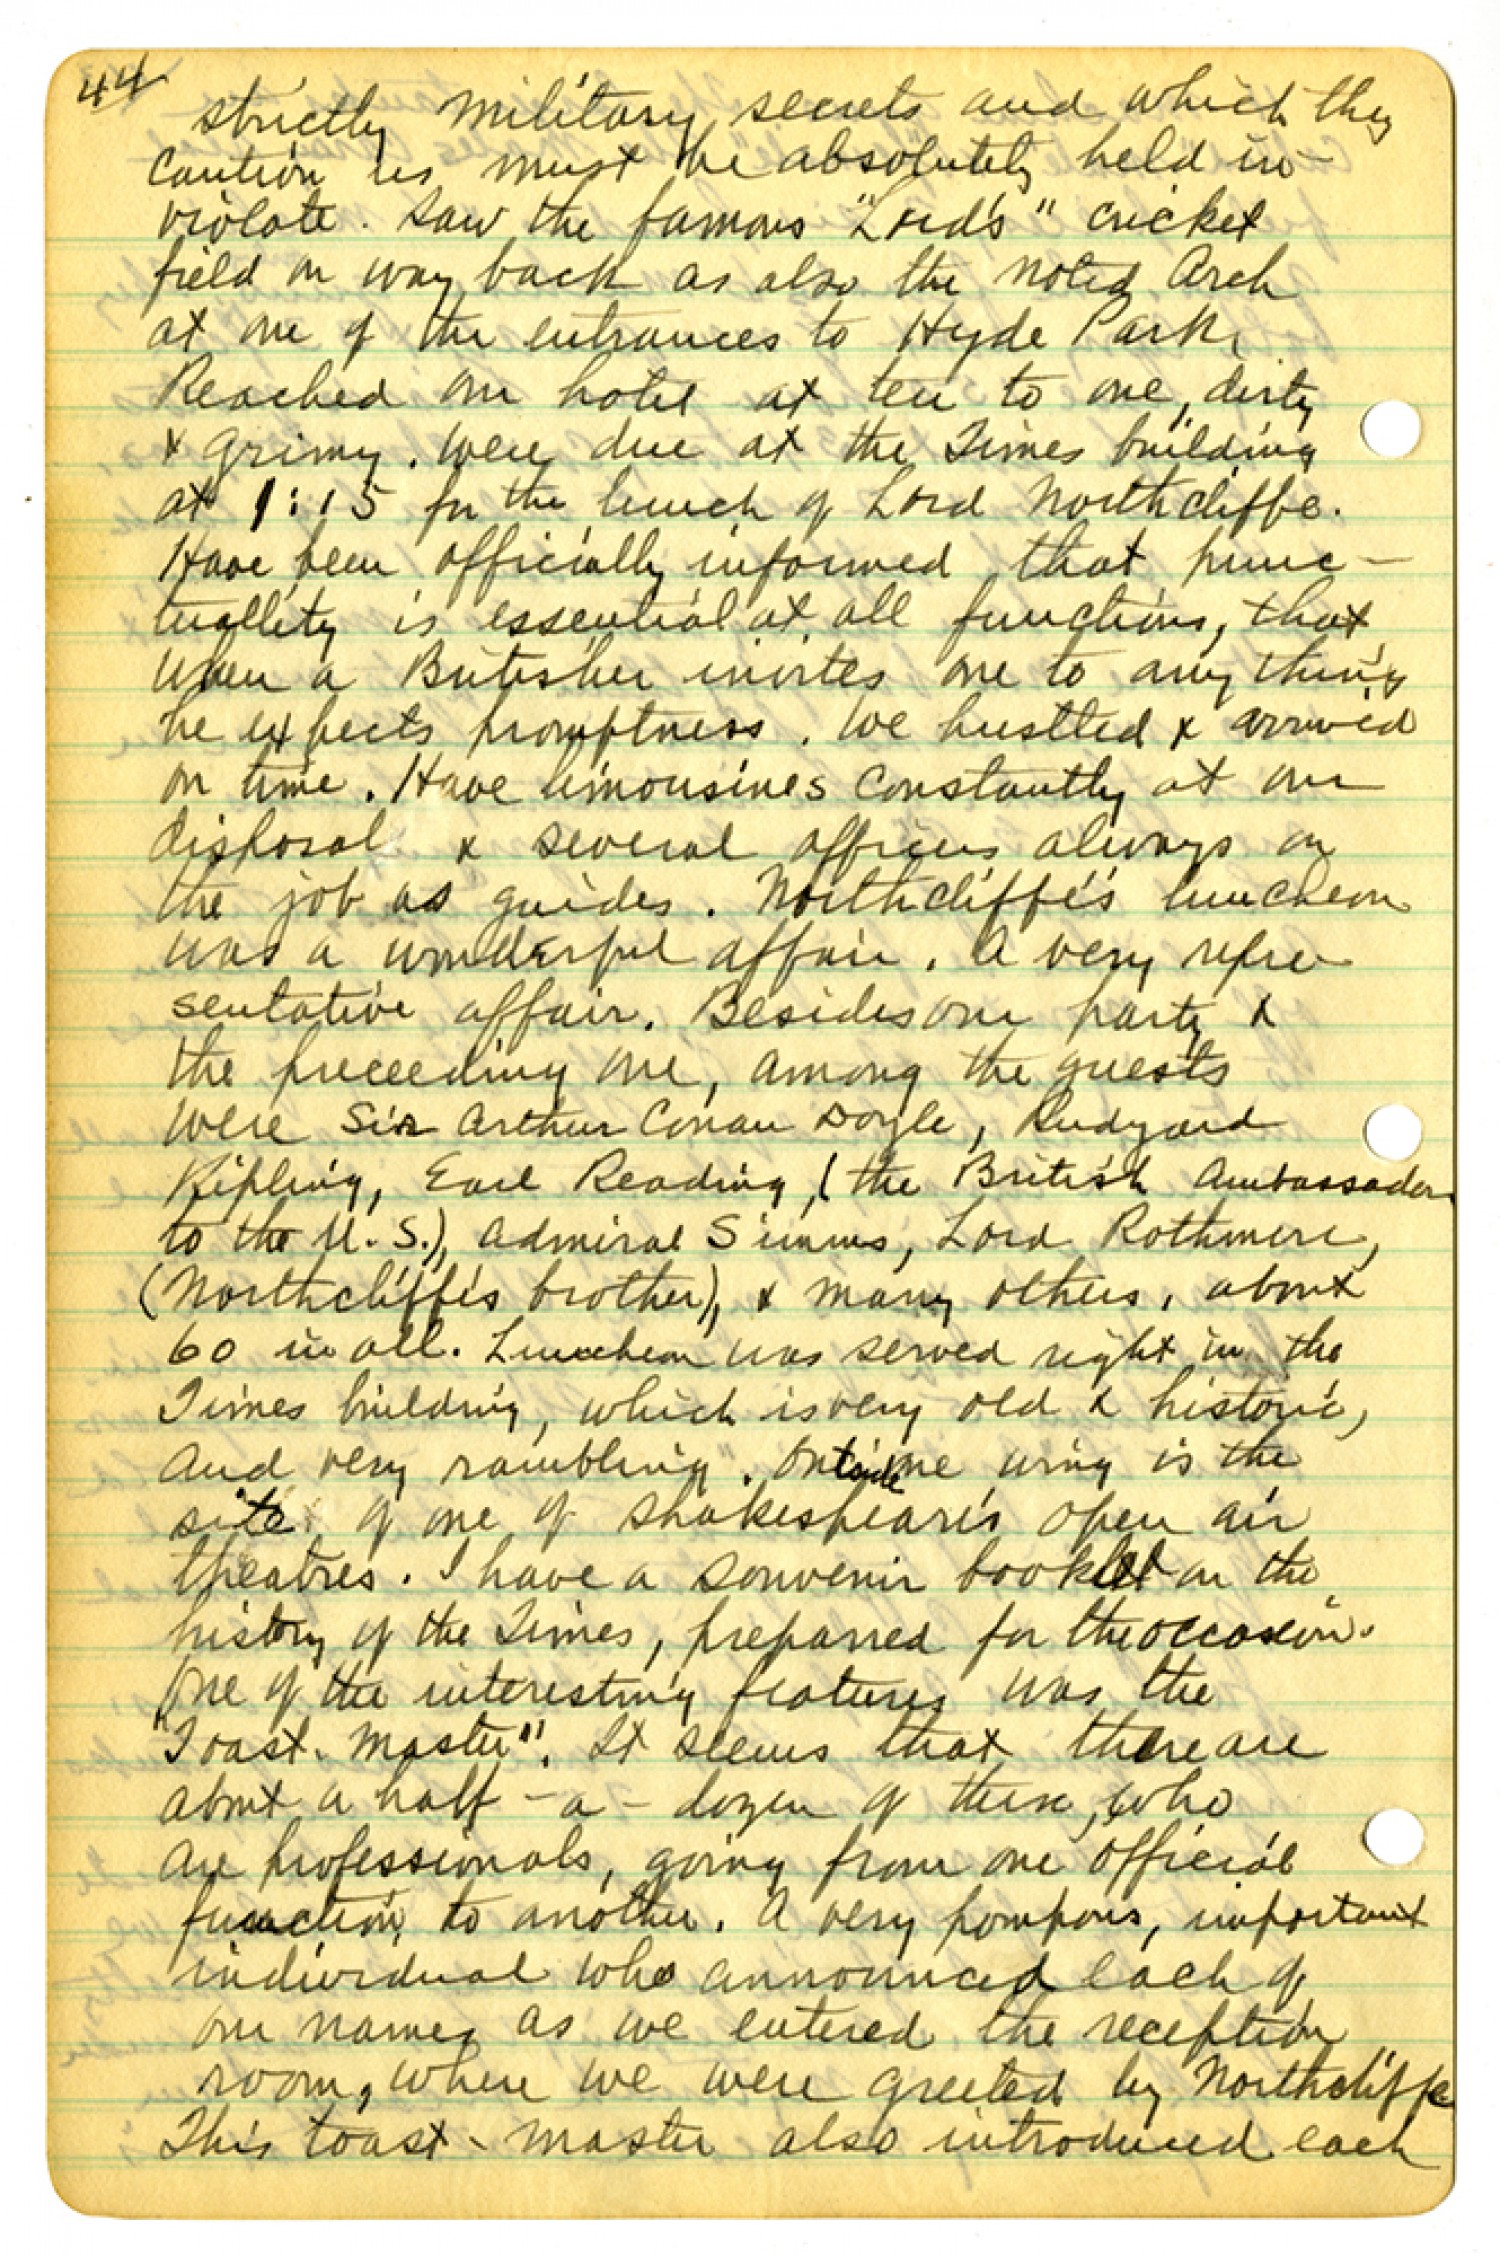 44
strictly military secrets and which they
caution us must be absolutely held in-
violate. Saw the famous "Lord's" cricket
field on way back as also the noted Arch
at one of the entrances to Hyde Park.
Reached our hotel at ten to one, dirty
& grimy. Were due at the Times building
at 1:15 for the lunch of Lord Northcliffe.
Have been officially informed that punc-
tuallity is essential at all functions, that
when a Britisher invites one to any thing
he expects promptness. We hustled & arrived
on time. Have limousines constantly at our
disposal & several officers always on
the job as guides. Northcliffe's luncheon
was a wonderful affair. A very repre-
sentative affair. Besides our party &
the preceeding one, among the guests
were Sir Arthur Conan Doyle, Rudyard
Kipling, Earl Reading, (the British Ambassador
to the U.S.), Admiral Simms, Lord Rothmere,
(Northcliffe's brother), & many others, about
60 in all. Luncheon was served right in the
Times building, which is very old & historic,
and very rambling". Outside one wing is the
site of one of Shakespeare's open air
theatres. I have a souvenir booklet on the
history of the Times, preparred for the occasion.
One of the interesting features was the
"Toast-Master". It seems that there are
about a half-a-dozen of these, who
are professionals, going from one official
function to another. A very pompous, important
individual who announced each of
our names as we entered the reception
room, where we were greeted by Northcliffe
This toast-master also introduced each